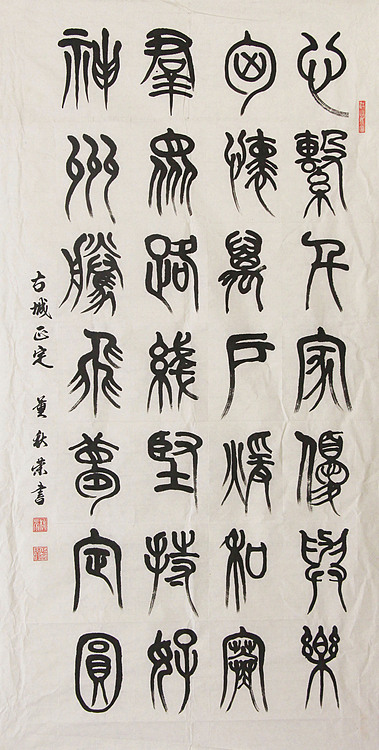 心繫千家優與樂
匈懷萬戶煖和寒
羣眾路綫堅持好
神州騰飛夢定圓
古城正定 秋榮書